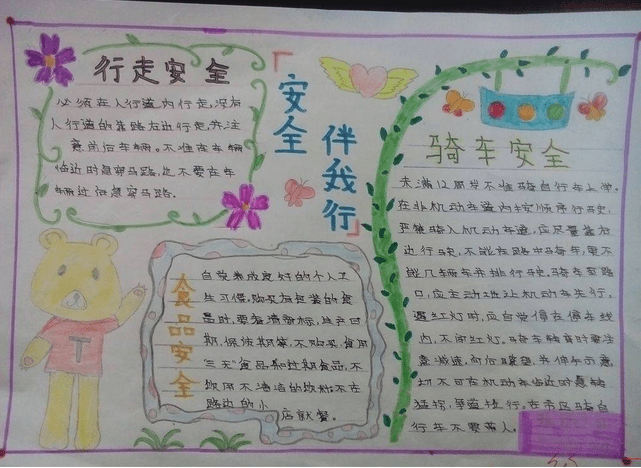 行走安全
必须在人行道内行走,没有
人行道的靠路右边行走,并注
意前后车辆。不准在车辆
临近时急穿马路,也不要在车
辆过后急穿马路.
「安全
伴我行」
骑车安全
未满12周岁不准骑自行车上学.
在非机动车道内按顺序行驶,
严禁骑入机动车道,应尽量靠右
边行驶,不能在路中骑车,更不
能几辆车并排行驶,骑车至路
口,应主动地让机动车先行.
遇红灯时,应自觉停在停车线
内,不闯红灯,骑车转弯时要注
意减速,向后瞭望,并伸手示意.
切不可在机动车临近时急转
猛拐,争道抢行,在市区骑自
行车不要带人。
食品安全
自觉养成良好的个人卫
生习惯,购买有包装的食
品时,要看清商标,生产日
期,保质期等,不购买,食用
"三无"食品和过期食品,不
饮用不洁净的饮料;不在
路边的小 店就餐。
T